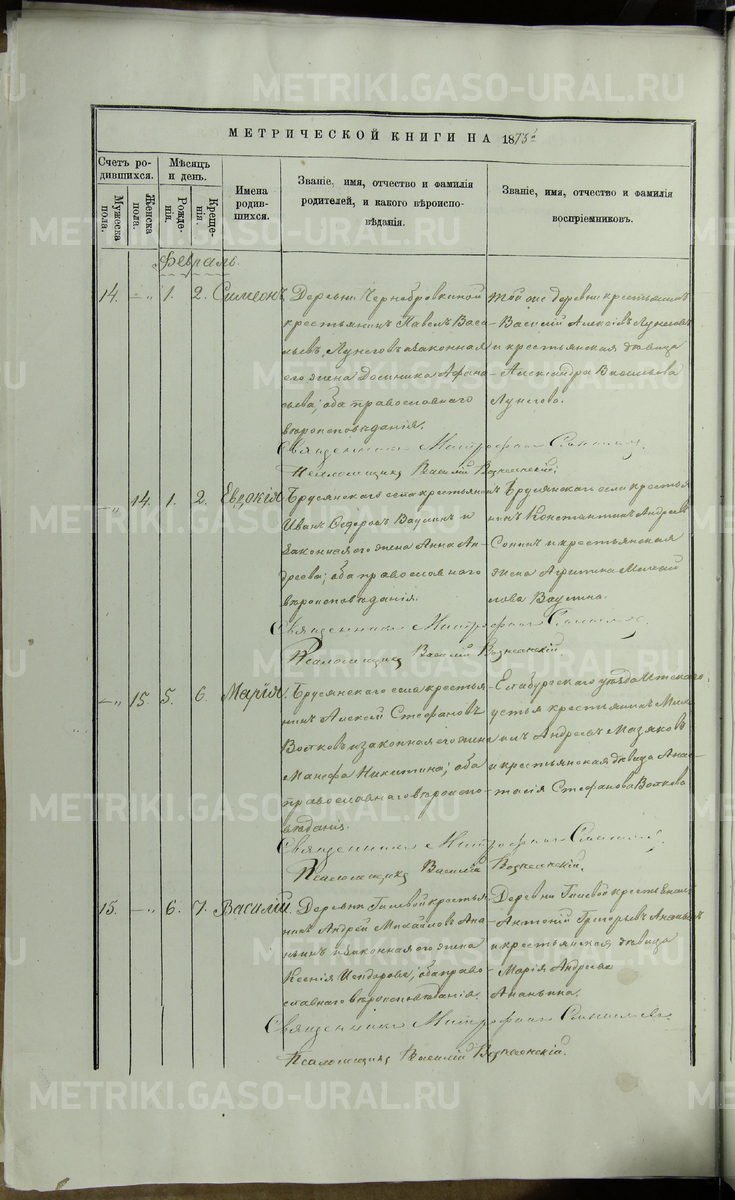 МЕТРИЧЕСКОЙ КНИГИ НА 1873
Счетъ родившихся.
Мужеска пола.
Женска пола.
Мѣсяцъ и день.
Рожденія.
Крещенія.
Имена родившихся.
Званіе, имя, отчество и фамилія
родителей, и какого вѣроиспо-
вѣданія.
Званіе, имя, отчество и фамилія
воспріемниковъ.
Февраль.
14. 1. 2. Симеонъ
Деревни Чернобровкиной
крестьянинъ Павелъ Васи
льевъ Лунеговъ и законная
его жена Домника Афана
сьева; оба православнаго
вѣроисповѣданія.
той же деревни крестьянинъ
Василій Алексѣевъ Лунеговъ
и крестьянская дѣвица
Александра Васильева
Лунегова.
Священникъ Митрофанъ
Псаломщикъ Василій Вознесенскій.
14. 1. 2. Евдокія
Брусянскаго села крестьянинъ
Иванъ Ѳедоровъ Ваулинъ и
законная его жена Анна Ан
дреева; оба православнаго
вѣроисповѣданія.
Брусянскаго села крестья
нинъ Константинъ Андреевъ
Сонинъ и крестьянская
жена
Ваулина.
Священникъ Митрофанъ
Псаломщикъ Василій Вознесенскій.
15. 5. 6. Марія
Брусянскаго села крестья
нинъ Алексѣй Стефановъ
Волковъ и законная его жена
Манефа Никитина; оба
православнаго вѣроиспо
вѣданія.
Елабугскаго уѣзда
устья крестьянинъ
Андреевъ Мазяковъ
и крестьянская дѣвица Анас
тасія Стефанова Волкова
Священникъ Митрофанъ
Псаломщикъ Василій Вознесенскій.
15. 6. 7. Василій
Деревни Гилевой крестья
нинъ Андрей Михайловъ Ана
ньинъ и законная его жена
Ксенія Исидорова; оба право
славнаго вѣроисповѣданія.
Деревни Гилевой крестьянинъ
Антоній Григорьевъ Ананьинъ
и крестьянская дѣвица
Марія Андреева
Ананьина.
Священникъ Митрофанъ
Псаломщикъ Василій Вознесенскій.
METRIKI.GASO-URAL.RU